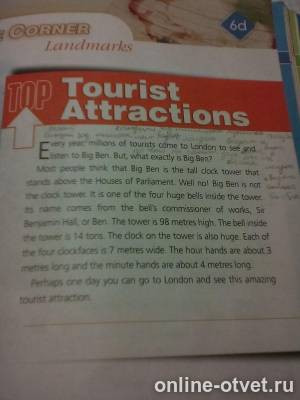 CORNER
6d
Landmarks
TOP
Tourist
Attractions
Every year, millions of tourists come to London to see and
listen to Big Ben. But, what exactly is Big Ben?
Most people think that Big Ben is the tall clock tower that
stands above the Houses of Parliament. Well no! Big Ben is not
the clock tower. It is one of the four huge bells inside the tower.
Its name comes from the bell's commissioner of works, Sir
Benjamin Hall, or Ben. The tower is 98 metres high. The bell inside
the tower is 14 tons. The clock on the tower is also huge. Each of
the four clockfaces is 7 metres wide. The hour hands are about 3
metres long and the minute hands are about 4 metres long.
Perhaps one day you can go to London and see this amazing
tourist attraction.
online-otvet.ru